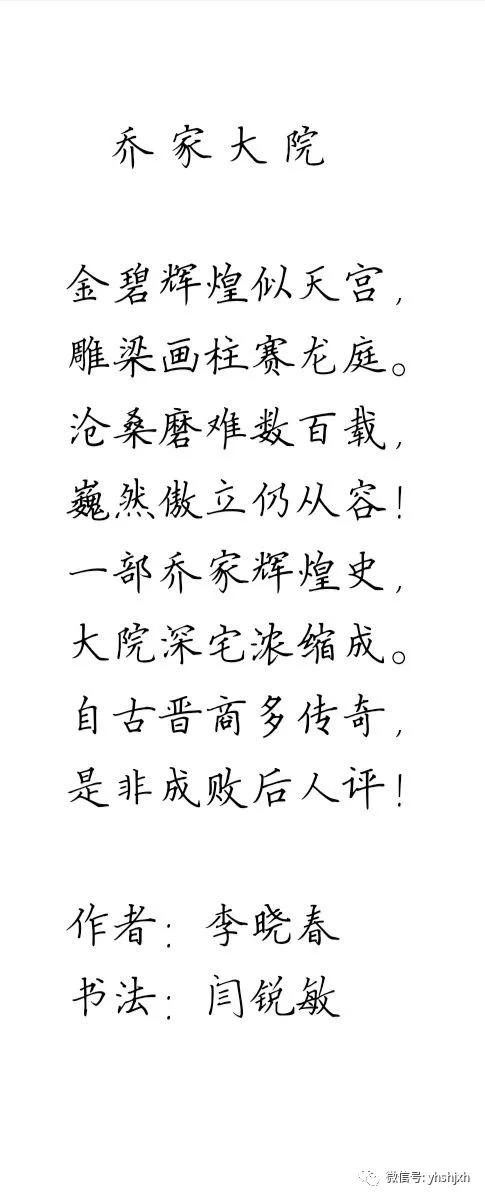 乔家大院
金碧辉煌似天宫，
雕梁画柱赛龙庭。
沧桑磨难数百载，
巍然傲立仍从容！
一部乔家辉煌史，
大院深宅浓缩成。
自古晋商多传奇，
是非成败后人评！
作者：李晓春
书法：闫锐敏
微信号: yhshjxh